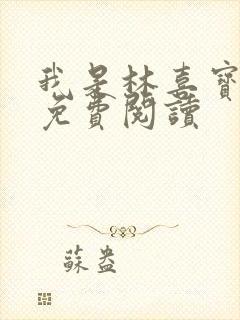 我是林喜寶
免費閱讀
蘇盎